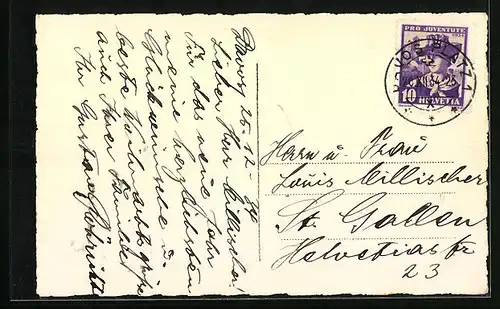 Davos, 26.12.34
Lieber Herr Millischer!
Für das neue Jahr
meine herzlichsten
Glückwünsche u.
beste Weihnachtsgrüße
auch Ihrer Familie
Ihr Gustav
PRO JUVENTUTE
10 HELVETIA
DAVOS PLATZ 1
Herrn u. Frau
Louis Millischer
St. Gallen
Helvetiastr
23